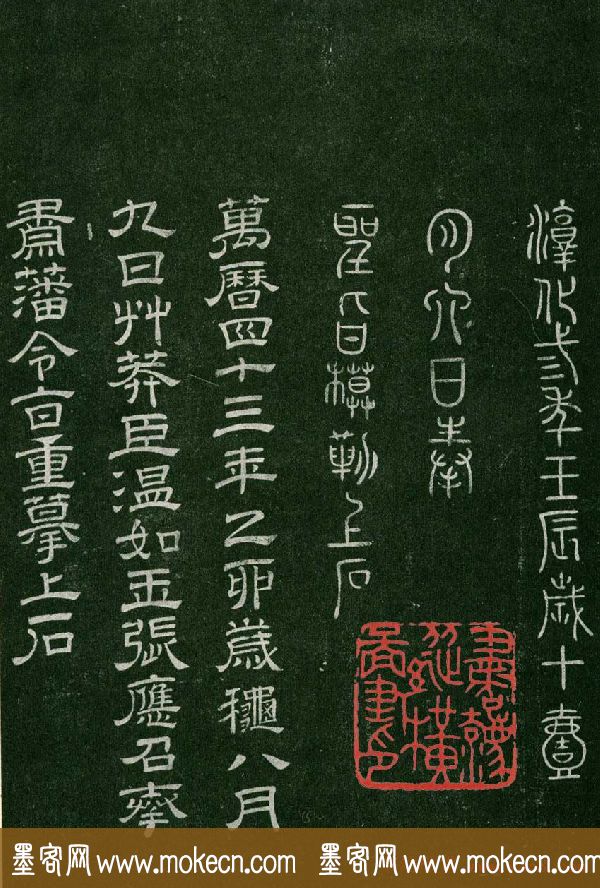 淳化弎年壬辰歳十壹
月六日奉
聖旨模勒上石
萬曆四十三年乙卯歲龝八月
九日艸莽臣温如玉張應召奉
肅藩令旨重摹上石
墨客网 www.mokecn.com 墨客网 www.mokecn.com